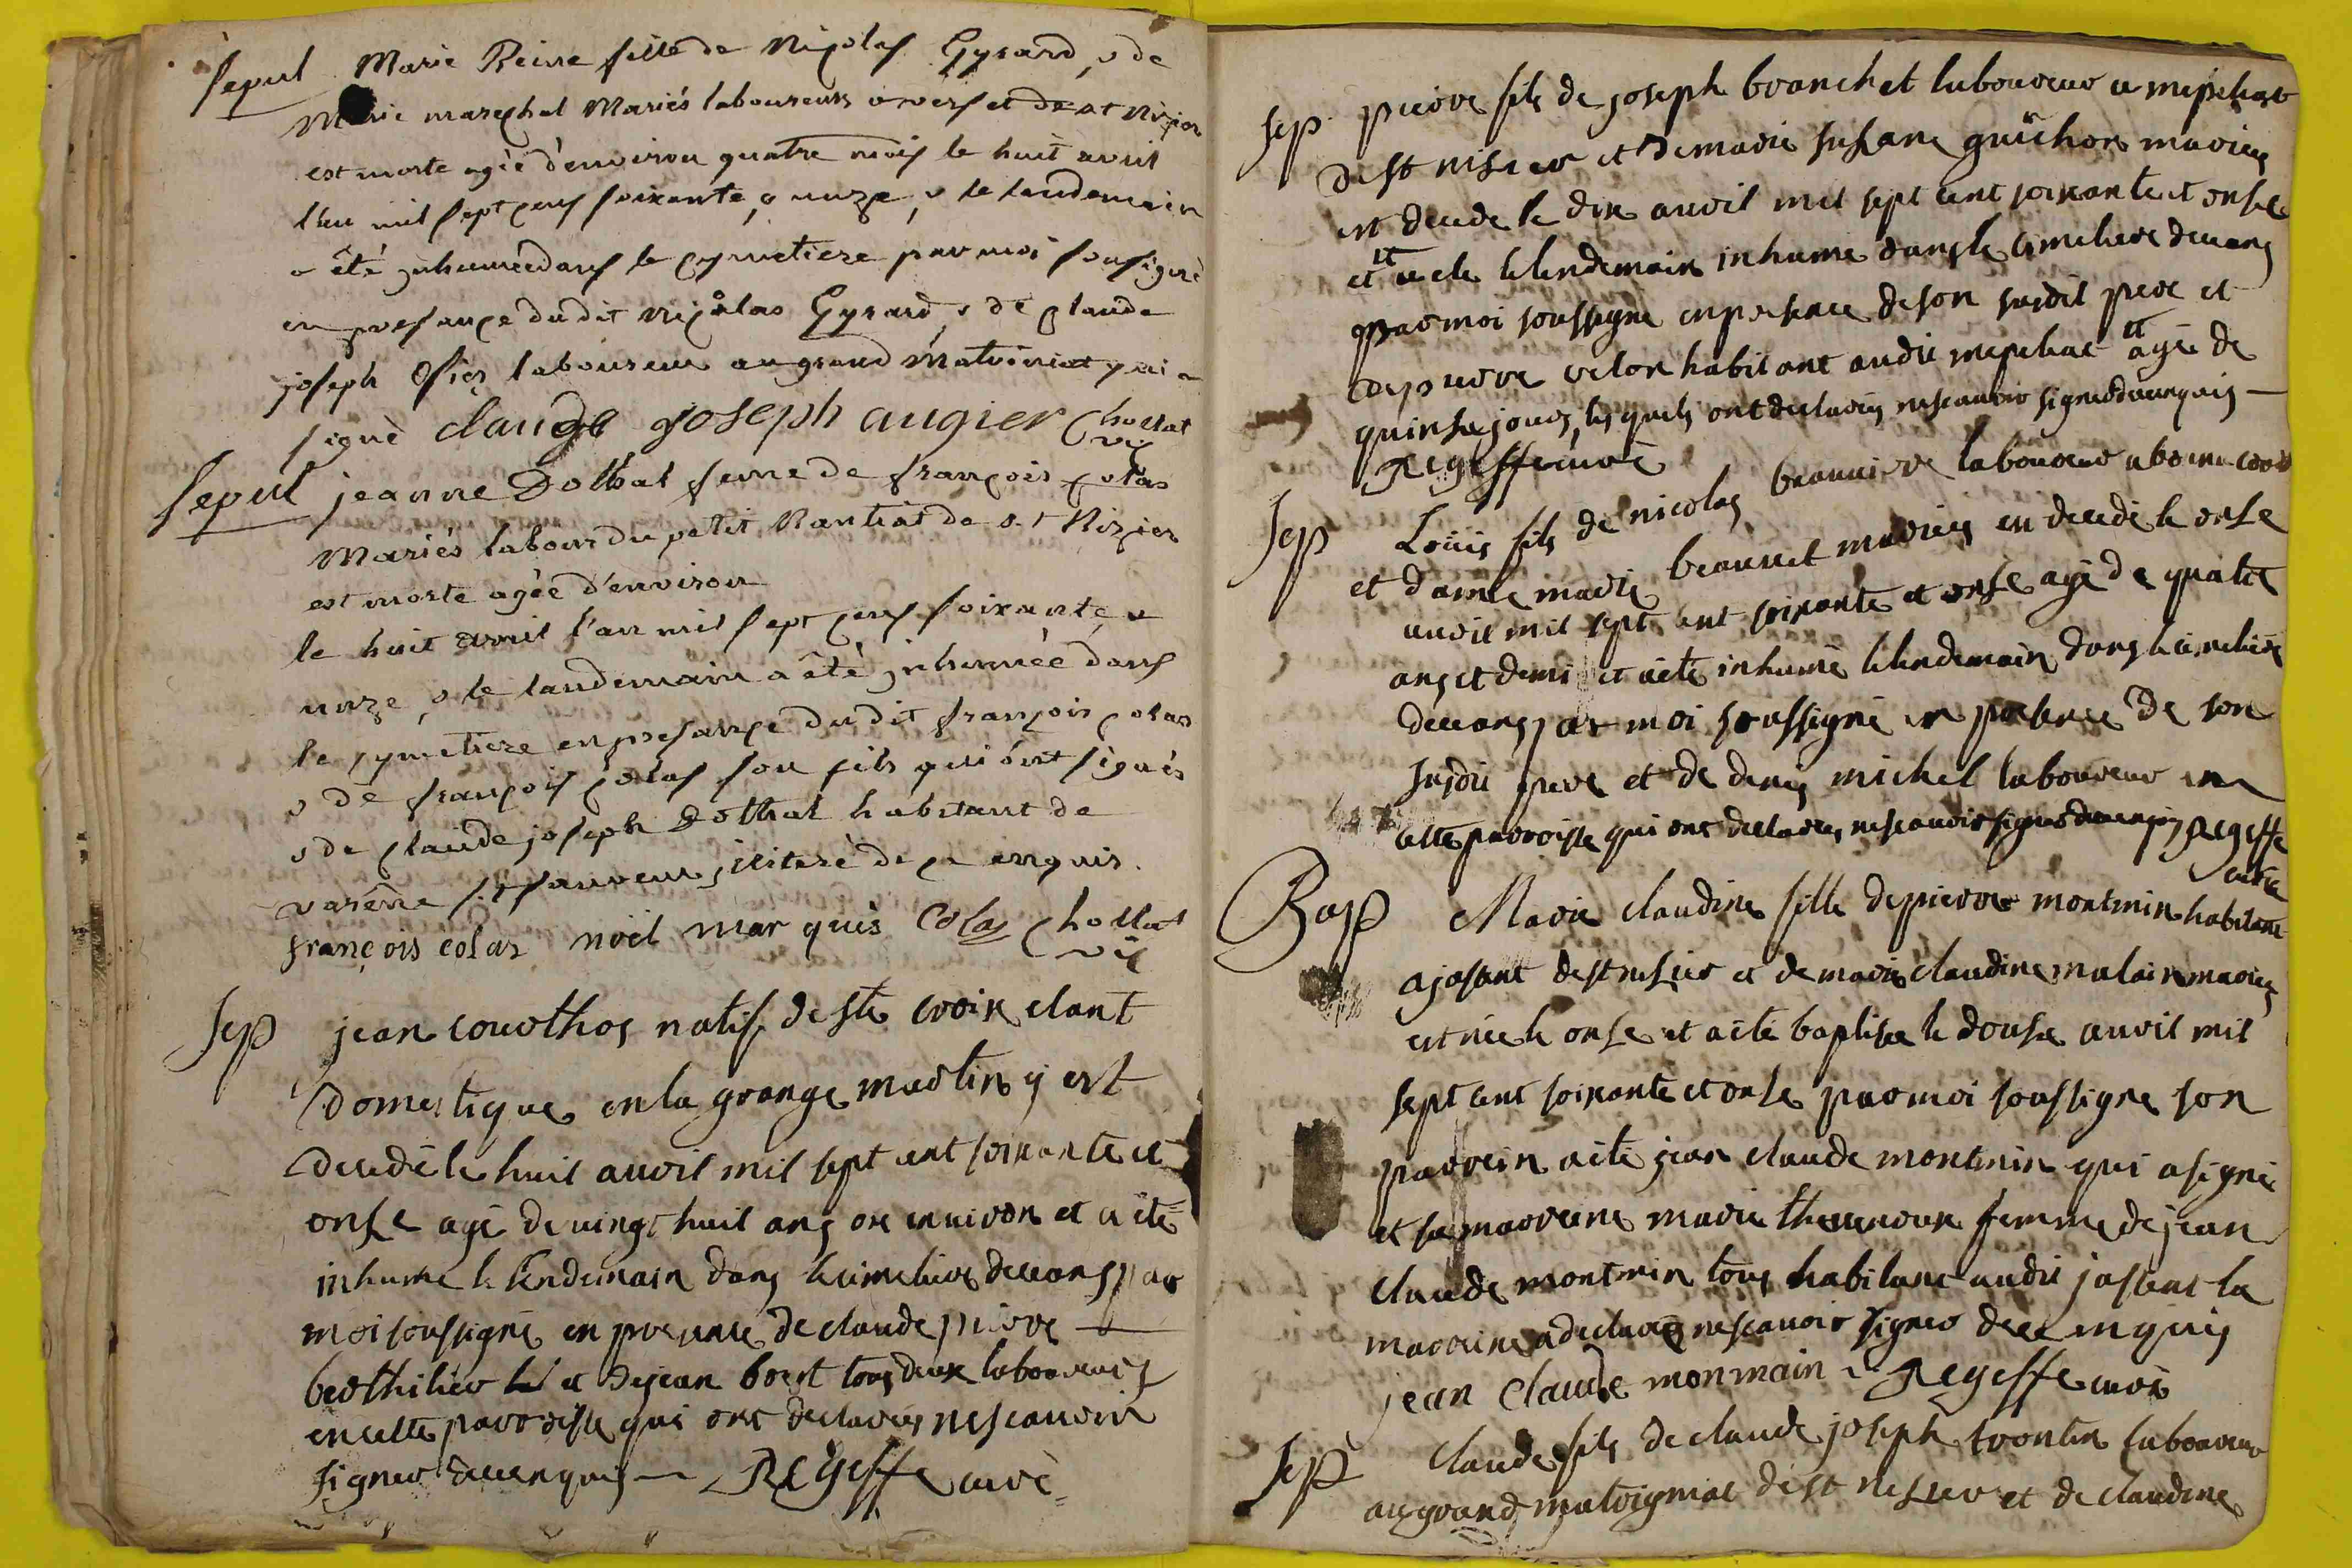 sepul Marie Reine fille de Nicolas Gyrard, & de
Marie marechal Mariés laboureurs a vers et de st Nizier
est morte agée d'environ quatre mois le huit avril
l'an mil sept cens soixante, & unze, & le landemain
a été inhumée dans le cymetiere par moi sousigné
en presance du dit nicolas Gyrard, & de claude
joseph Osier laboureur au grand Matviniat qui a
signé claude joseph augier Chollat
vic
sepul jeanne Dothal feme de françois colas
Mariés labour du petit Nantiat de st Nizier
est morte agée d'environ
le huit avril l'an mil sept cens soixante, &
unze, & le landemain a été inhumée dans
le cymetiere en presance du dit françois colas
& de françois colas son fils qui ont signés
& de claude joseph Dothal habitant de
varêne st sauveur, iliteré de ce enquis.
françois colas noël marquis Colas Chollat
vic
Sep jean couvthos natif de ste croix etant
Domestique en la grange martin y est
decedé le huit avril mil sept cent soixante et
onse agé de vingt huit ans ou environ et a été
inhume le lendemain dans le cimetiere ceans par
moi soussigné en presence de claude pierre
berthilier et de jean boret tous deux laboureurs
en cette parroisse qui ont declarés ne scauoir
signer de ce enquis Regeffe curé
sep. pierre fils de joseph branchet laboureur a mepelias
de st nisier et de marie susane guichon mariés
est decede le dix auril mil sept cent soixante et onse
et a ete le lendemain inhume dans le cimetiere ceans
par moi soussigne en presence de son susdit pere et
de pierre velon habitant audit mepelias et agé de
quinse jours, les quels ont declarés ne scauoir signer de ce enquis
Regeffe curé
Sep Loüis fils de nicolas beauvivre laboureur a
et d'anne marie beauvret mariés est decedé le onse
auril mil sept cent soixante et onse agé de quatre
ans et demi et a été inhumé le lendemain dans le cimetiere
ceans par moi soussigné en presence de son
susdit pere et de denis michel laboureur en
cette parroisse qui ont declarés ne scauoir signer de ce enquis Regeffe
curé
Bap Marie claudine fille de pierre montmin habitant
a josant de st nisier et de marie claudine malain mariés
est née le onse et a été baptisée le douse auril mil
sept cent soixante et onse par moi soussigne son
parrein a été jean claude montmin qui a signé
et sa marreine marie thevenoux femme de jean
claude montmin tous habitans audit josant la
marreine a declaré ne scauoir signer de ce enquis
jean claude monmain Regeffe curé
Sep Claude fils de claude joseph trontin laboureur
au grand matvigniat de st nisier et de claudine